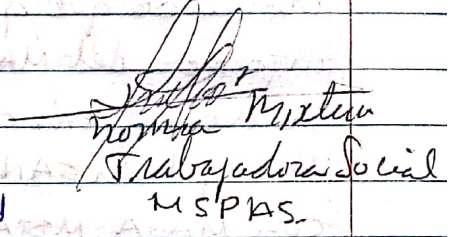 Norma Mixtun
Trabajadora Social
MSPAS.